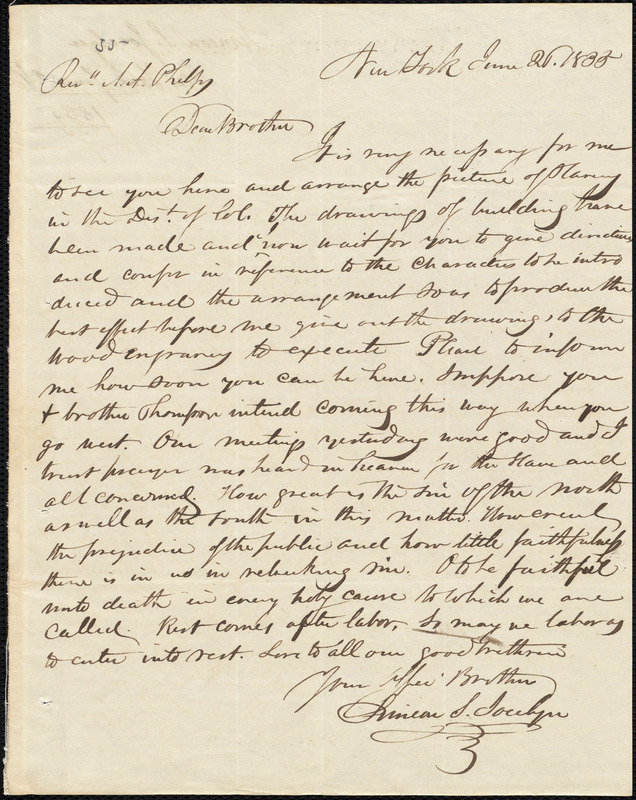 33
New York June 26. 1835
Revd. A. A. Phelps
Dear Brother
It is very necessary for me
to see you here and arrange the picture of Slavery
in the Dist. of Col. The drawings of building have
been made and now wait for you to give directions
and confer in reference to the characters to be intro
duced and the arrangement so as to produce the
best effect before we give out the drawings to the
Wood engravers to execute Please to inform
me how soon you can be here. I suppose you
& brother Thompson intend coming this way when you
go west. Our meetings yesterday were good and I
trust prayer was heard in heaven for the Slave and
all concerned. How great is the sin of the north
as well as the South in this matter. How cruel
the prejudice of the public and how little faithfulness
there is in us in rebuking sin. O to be faithful
unto death in every holy cause to which we are
called. Rest comes after labor, So may we labor as
to enter into rest. Love to all our good brethren
Your Affec. Brother
Simeon S. Jocelyn